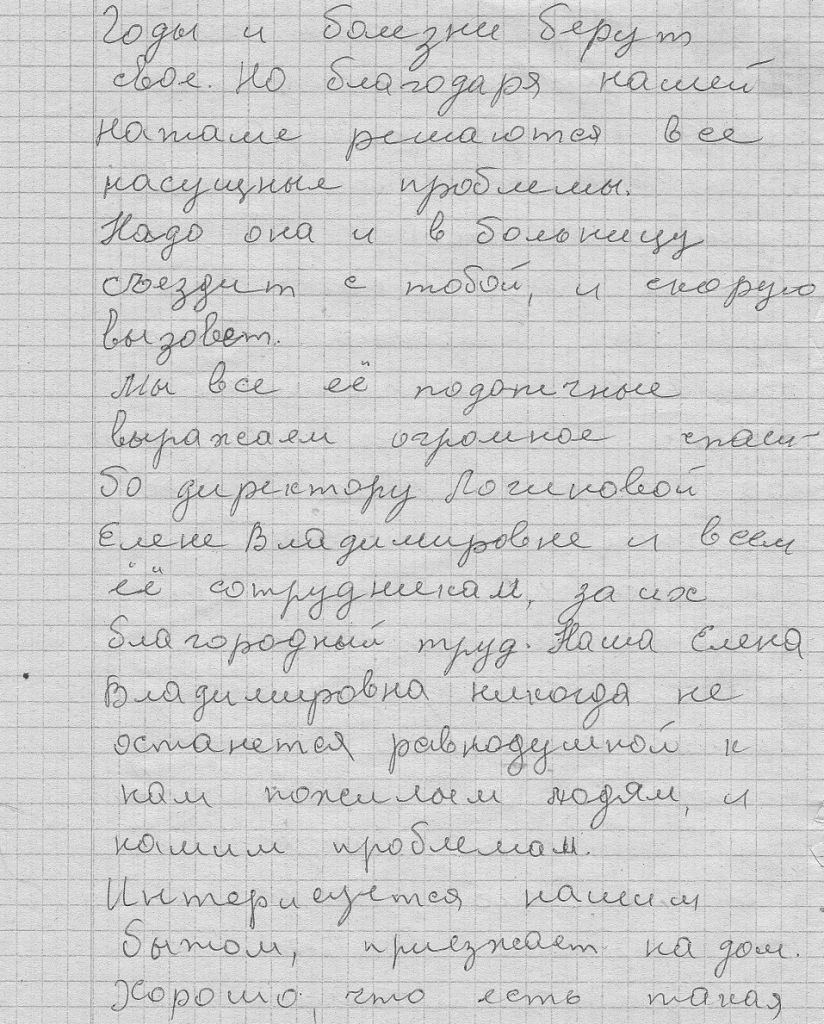 Годы и болезни берут
свое. Но благодаря нашей
Наташе решаются все
насущные проблемы.
Надо она и в больницу
съездит с тобой, и скорую
вызовет.
Мы все её подопечные
выражаем огромное спаси-
бо директору Логиновой
Елене Владимировне и всем
её сотрудникам, за их
благородный труд. Наша Елена
Владимировна никогда не
останется равнодушной к
нам пожилым людям, и
нашим проблемам.
Интерисуется нашим
бытом, приезжает на дом.
Хорошо, что есть такая